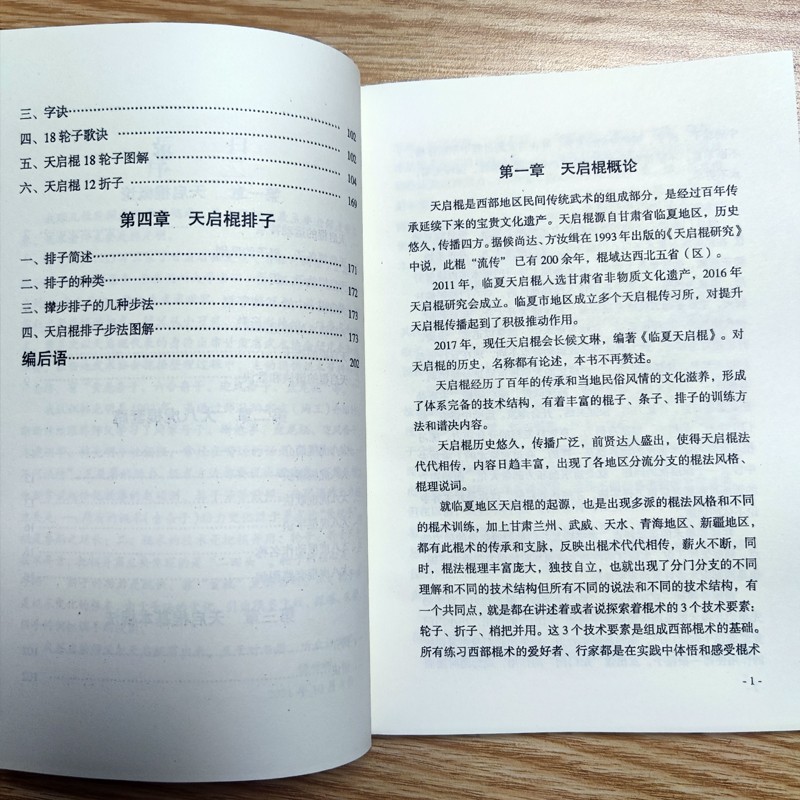 三、字诀……………………………………………… 102
四、18轮子歌诀 ………………………………………… 102
五、天启棍18轮子图解 ……………………………… 104
六、天启棍12折子 …………………………………… 169
第四章 天启棍排子
一、排子简述…………………………………………… 171
二、排子的种类………………………………………… 172
三、撵步排子的几种步法……………………………… 173
四、天启棍排子步法图解……………………………… 173
编后语…………………………………………………… 202
第一章 天启棍概论
天启棍是西部地区民间传统武术的组成部分，是经过百年传
承延续下来的宝贵文化遗产。天启棍源自甘肃省临夏地区，历史
悠久，传播四方。据候尚达、方汝缉在1993年出版的《天启棍研究》
中说，此棍“流传” 已有200余年，棍域达西北五省（区）。
2011年，临夏天启棍入选甘肃省非物质文化遗产，2016年
天启棍研究会成立。临夏市地区成立多个天启棍传习所，对提升
天启棍传播起到了积极推动作用。
2017年，现任天启棍会长候文琳，编著《临夏天启棍》。对
天启棍的历史，名称都有论述，本书不再赘述。
天启棍经历了百年的传承和当地民俗风情的文化滋养，形成
了体系完备的技术结构，有着丰富的棍子、条子、排子的训练方
法和谱决内容。
天启棍历史悠久，传播广泛，前贤达人盛出，使得天启棍法
代代相传，内容日趋丰富，出现了各地区分流分支的棍法风格、
棍理说词。
就临夏地区天启棍的起源，也是出现多派的棍法风格和不同
的棍术训练，加上甘肃兰州、武威、天水、青海地区、新疆地区，
都有此棍术的传承和支脉，反映出棍术代代相传，薪火不断，同
时，棍法棍理丰富庞大，独技自立，也就出现了分门分支的不同
理解和不同的技术结构但所有不同的说法和不同的技术结构，有
一个共同点，就是都在讲述着或者说探索着棍术的3个技术要素：
轮子、折子、梢把并用。这3个技术要素是组成西部棍术的基础。
所有练习西部棍术的爱好者、行家都是在实践中体悟和感受棍术
- 1 -